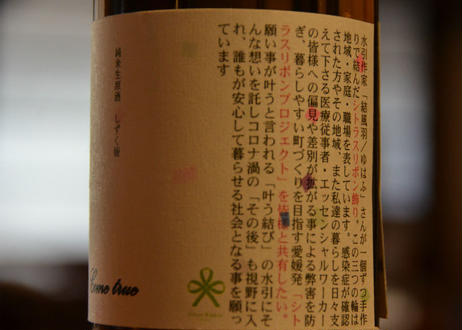 水引作家「結風羽／ゆはふ」さんが一個ずつ手作
りで結んだシトラスリボン飾り。この三つの輪は
地域・家庭・職場を表しています。感染症が確認
された方やその地域、また私達の暮らしを日々支
えて下さる医療従事者・エッセンシャルワーカー
の皆様への偏見や差別が拡がる事による弊害を防
ぎ、暮らしやすい町づくりを目指す愛媛発「シト
ラスリボンプロジェクト」を皆様と共有したい。
願い事が叶うと言われる「叶う結び」の水引にそ
んな想いを託しコロナ渦の「その後」も視野に入
れ、誰もが安心して暮らせる社会となる事を願っ
ています
純米生原酒 しずく媛
Come true